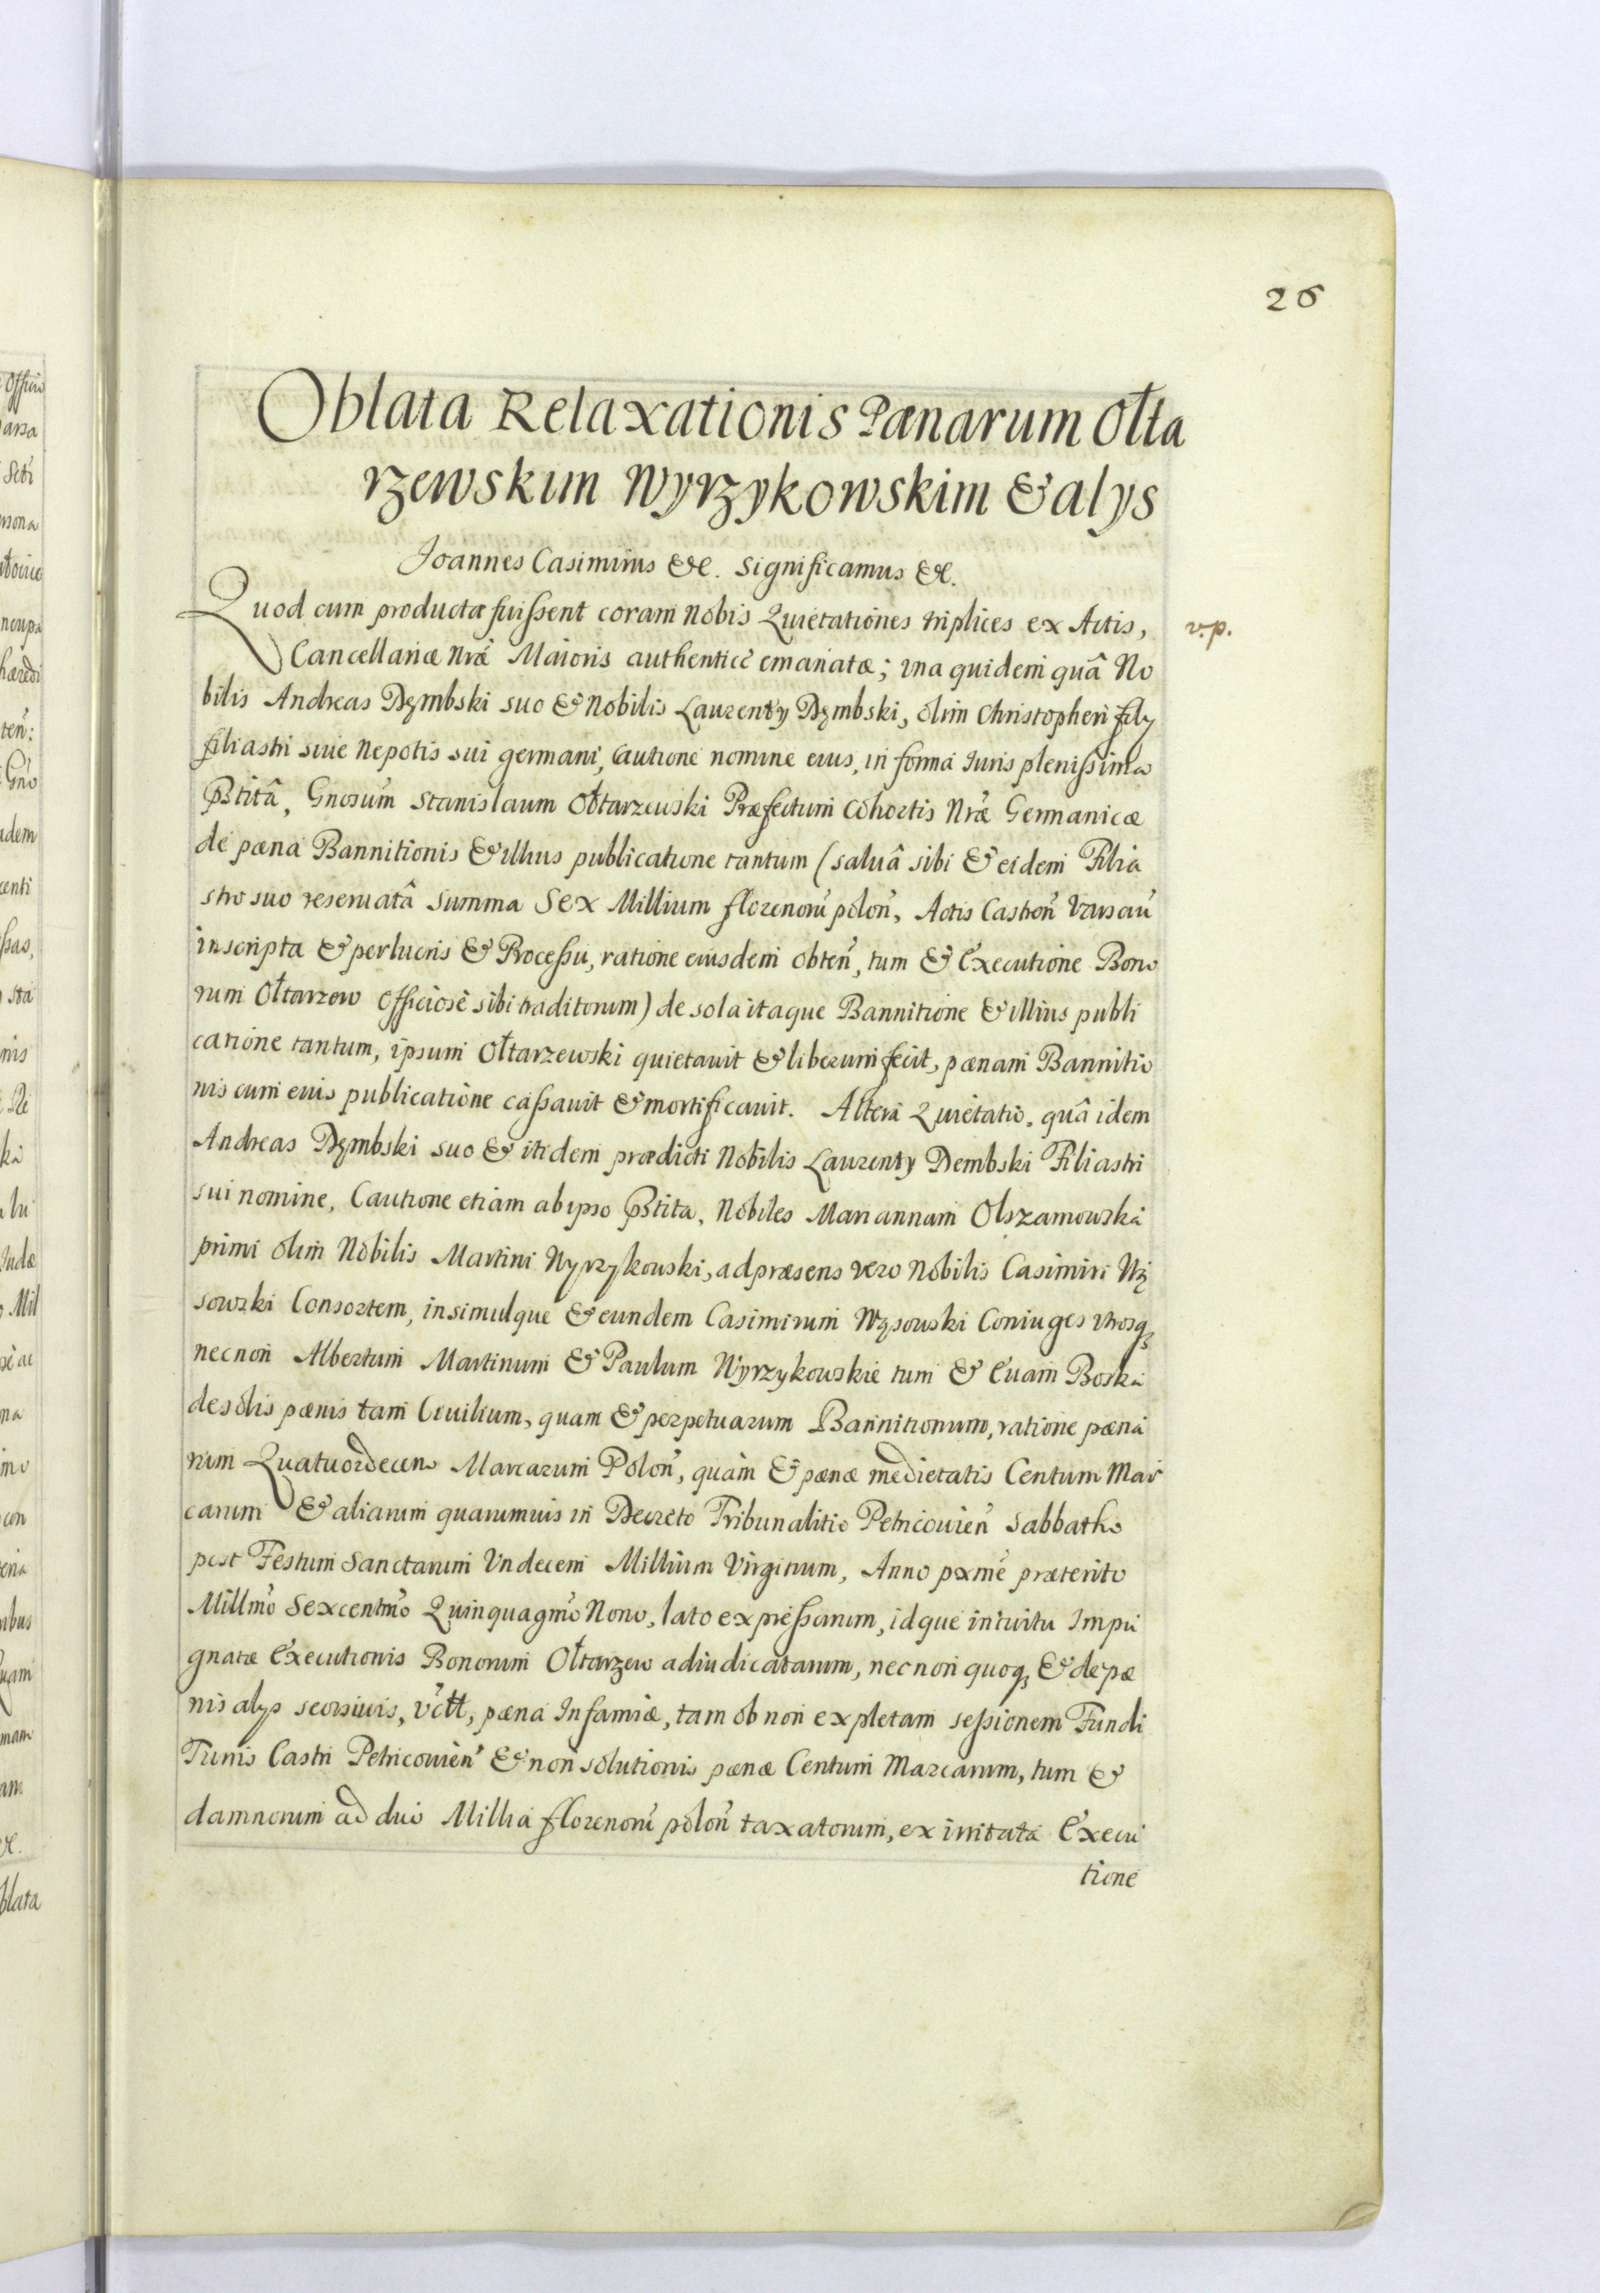 26
Oblata Relaxationis Pænarum Ołta
rzewskim Wyrzykowskim & alys
Joannes Casimirus &c. significamus &c.
Quod cum productæ fuissent coram Nobis Quietationes triplices ex Actis,
v.p.
Cancellariæ Nræ Maioris authenticè emanatæ; una quidem quâ No
bilis Andreas Dęmbski suo & Nobilis Laurenty Dęmbski, olim Christopheri fily
filiastri siue Nepotis sui germani, Cautione nomine eius, in forma Iuris plenissima
Pstitâ, Gnosum Stanislaum Ołtarzewski Præfectum Cohortis Nræ Germanicæ
de pæna Bannitionis & illius publicatione tantum (saluâ sibi & eidem Filia
stro suo reseruatâ summa Sex Millium florenorũ polon, Actis Castren Varsau
inscripta & perlucris & Processu, ratione eiusdem obten, tum & Executione Bono
rum Ołtarzew Officiosè sibi traditorum) de sola itaque Bannitione & illius publi
catione tantum, ipsum Ołtarzewski quietauit & liberum fecit, pænam Bannitio
nis cum eius publicatione cassauit & mortificauit. Altera Quietatio, quâ idem
Andreas Dęmbski suo & itidem prædicti Nobilis Laurenty Dembski Filiastri
sui nomine, Cautione etiam ab ipso Pstita, Nobiles Mariannam Olszamowska
primi olim Nobilis Martini Wyrzykowski, ad præsens vero Nobilis Casimiri Wę
sowski Consortem, insimulque & eundem Casimirum Węsowski Coniuges vtrosq
necnon Albertum Martinum & Paulum Wyrzykowskie tum & Euam Boska
de solis pænis tam Ciuilium, quam & perpetuarum Bannitionum, ratione pæna
rum Quatuordecem Marcarum Polon, quàm & pænæ medietatis Centum Mar
carum & aliarum quarumuis in Decreto Tribunalitio Petricouien Sabbatho
post Festum Sanctarum Vndecem Millium Virginum, Anno pxmè præterito
Millmo Sexcentmo Quinquagmo Nono, lato expressarum, idque intuitu Impu
gnatæ Executionis Bonorum Ołtarzew adiudicatarum, necnon quoq & de pæ
nis alys seorsiuis, vctt, pæna Infamiæ, tam ob non expletam sessionem Fundi
Turris Castri Petricouien & non solutionis pænæ Centum Marcarum, tum &
damnorum ad duo Millia florenorũ polon taxatorum, ex irritata Execu
tione